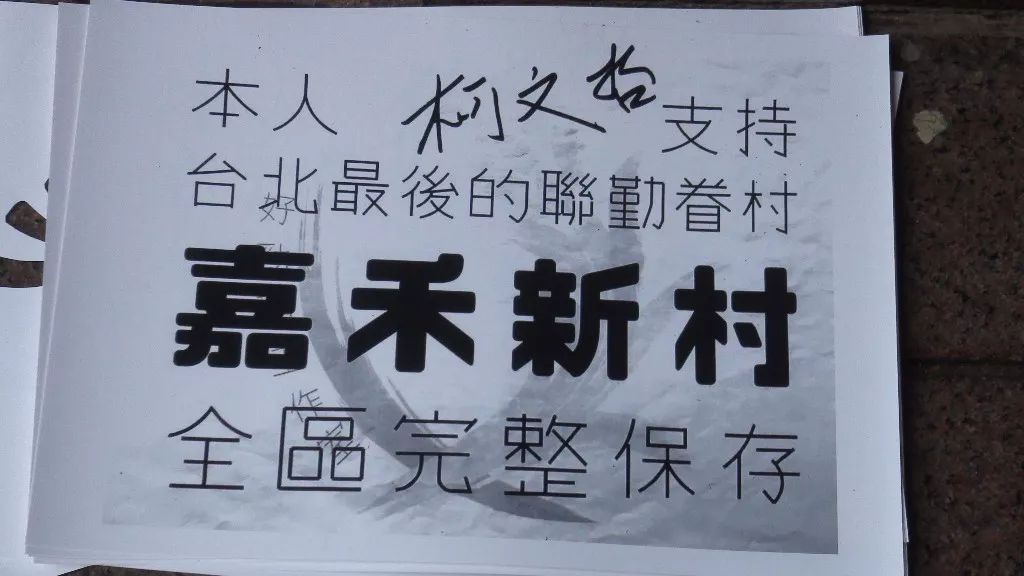 本人 柯文哲 支持
台北最後的聯勤眷村
嘉禾新村
全區完整保存